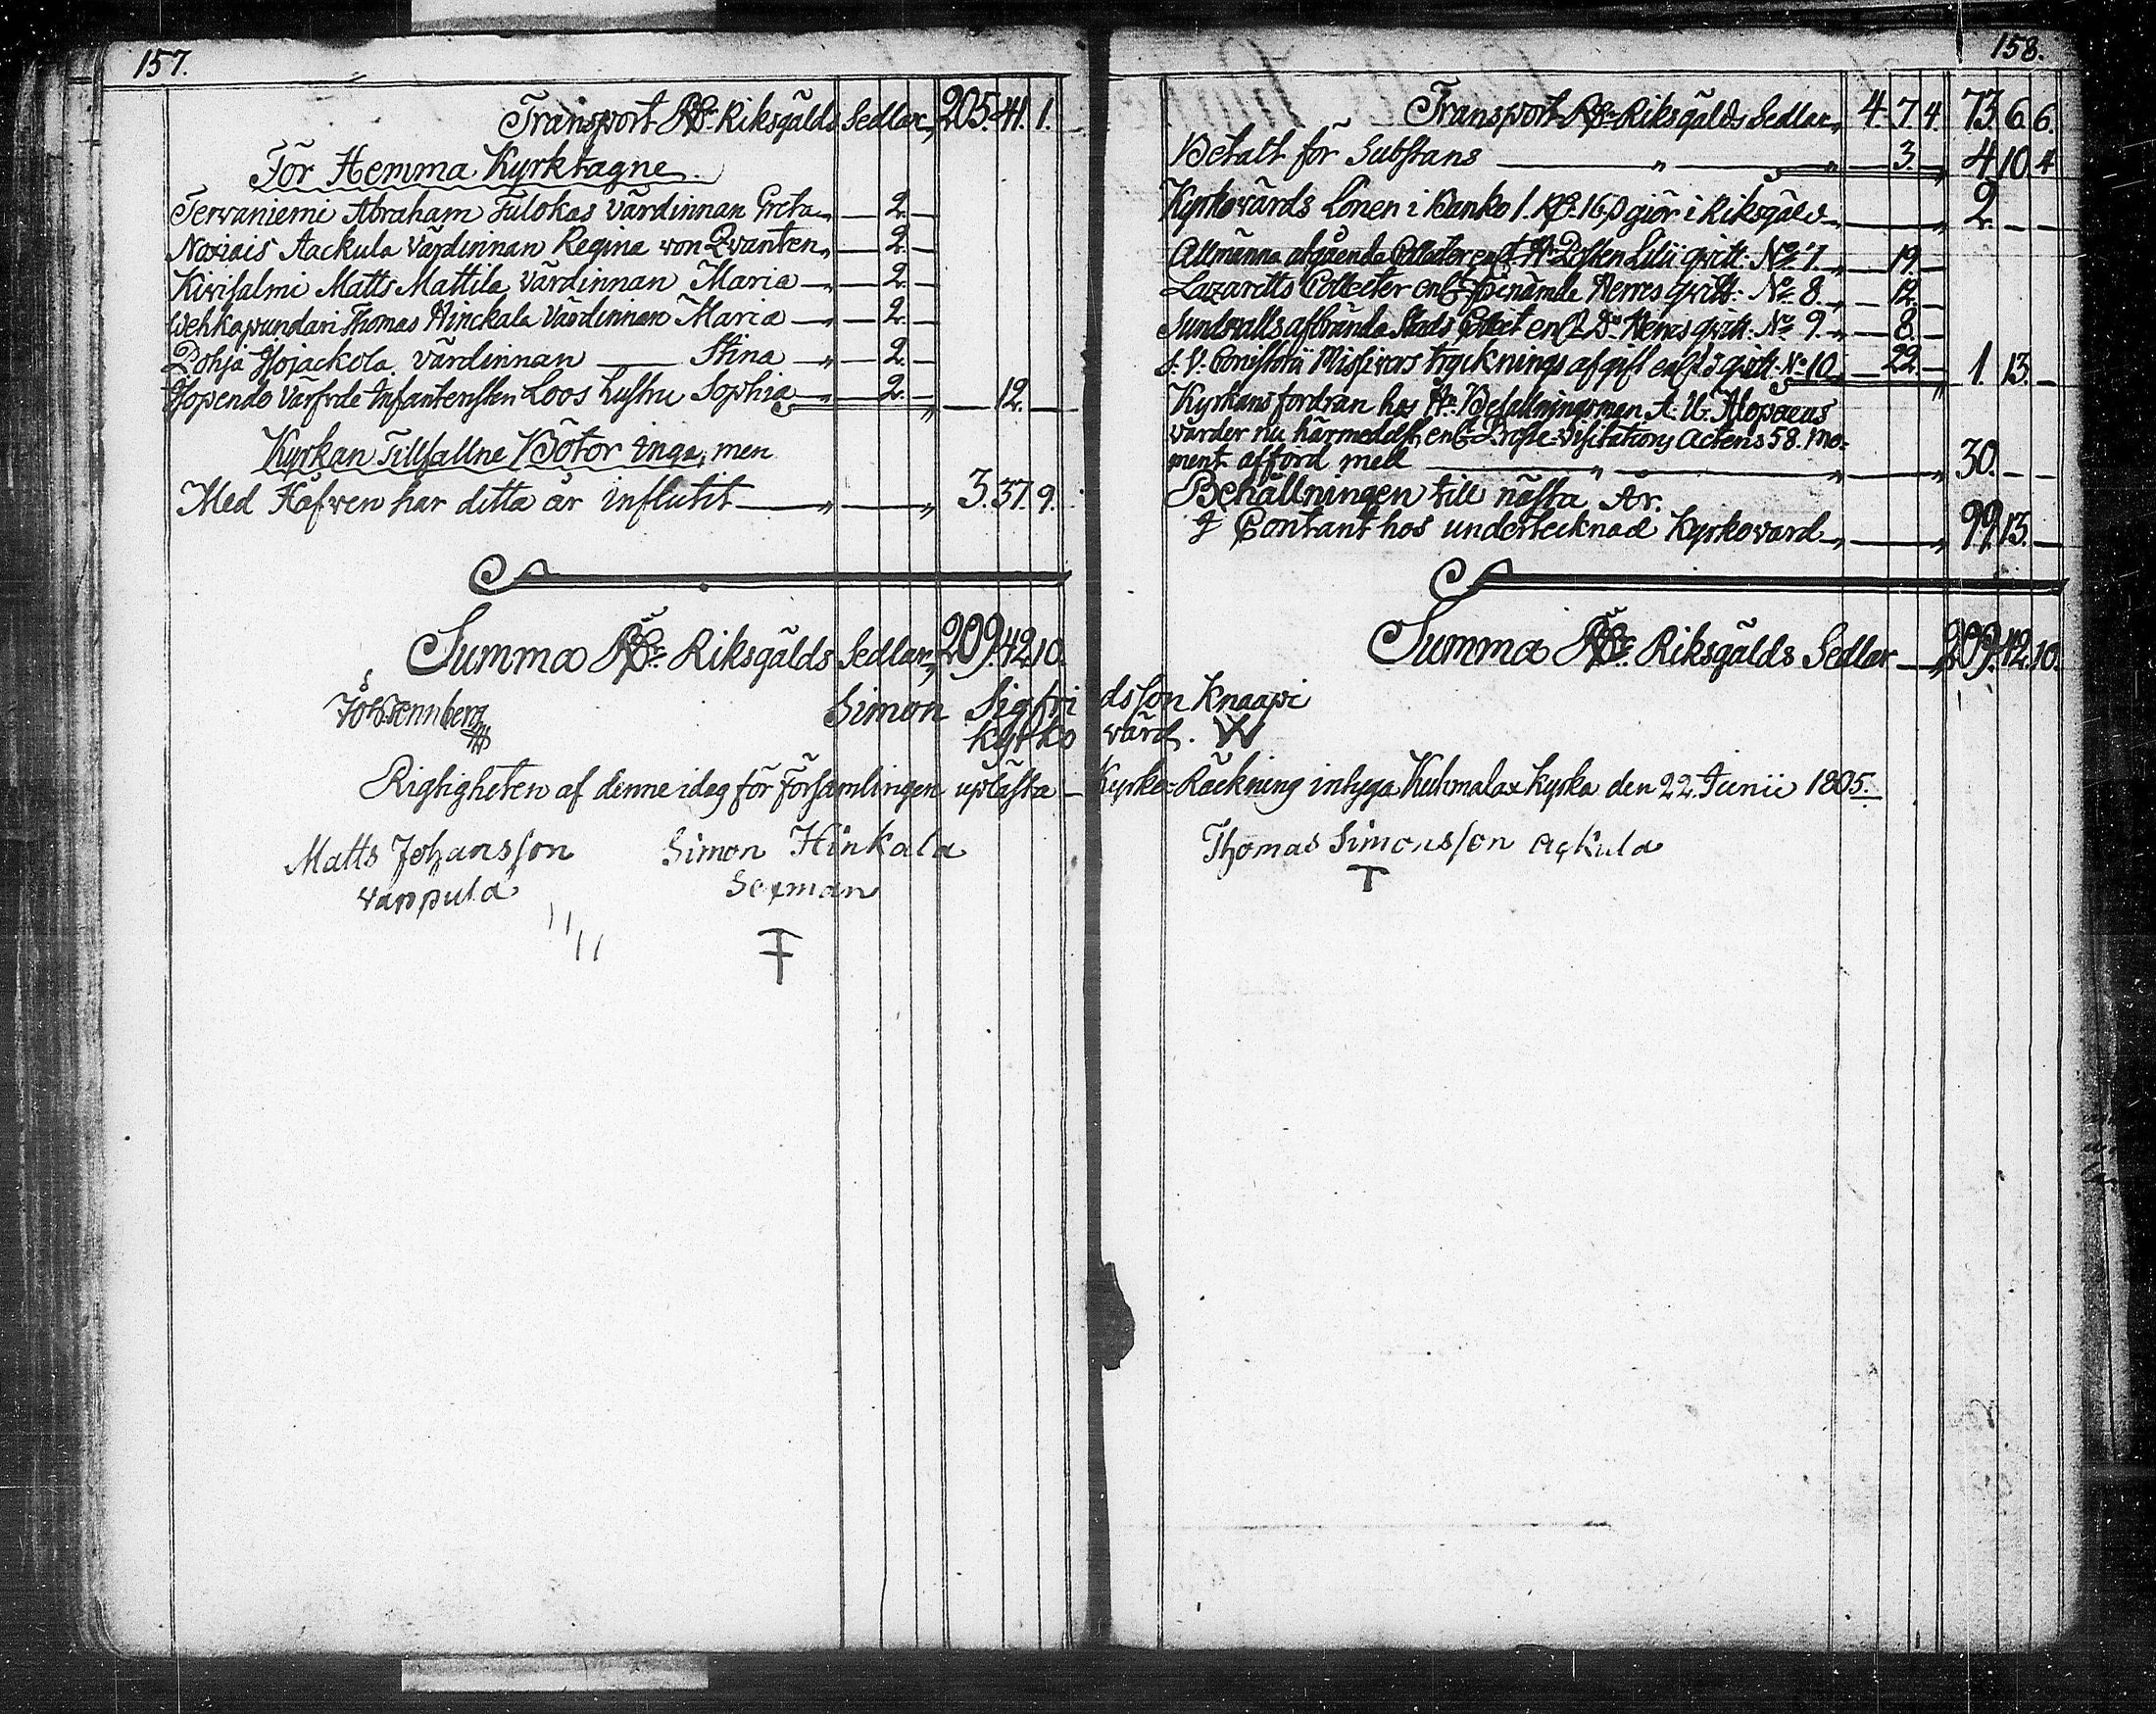 157.
Transport Rdr Riksgälds Sedlar „ 205. 41. 1.
För Hemma Kyrktagne.
Tervaniemi Abraham Tulokas Värdinnan Greta „ — 2. —
Noxiais Aackula Värdinnan Regina von Qvanten „ — 2. —
Kirisalmi Matts Mattila Värdinnan Maria — „ — 2. —
Wehkapundari Thomas Hinckala Värdinnan Maria — „ — 2. —
Pohja Hojackola Värdinnan — Stina — „ — 2. —
Värfvde Infanteristen Loos hustru Sophia „ — 2. — „ — 12. —
Kyrkan Tillfallne Böter inga, men
Med Håfven har detta år influtit — „ — „ 3. 37. 9.
Summa Rdr Riksgälds Sedlar „ 209. 42. 10.
Simon Sigfridsson Knaapi
Kyrkovärd.
Rigtigheten af denne idag för Församlingen uplästa Kyrko-Räckning intyga Kuhmalax Kyrka den 22. Junii 1805.
Matts Johansson Simon Hinkala Thomas Simonsson Ackula
vappula Sexman T
158.
Transport Rdr Riksgälds Sedlar „ 4. 7. 4. 73. 6. 6.
Betalt för Substans — „ — „ — 3. — „ 4. 10. 4
Kyrkovärds Lönen i Banko 1. Rdr. 16 ß giör i Riksgäld — „ 2. — —
Allmänna afgående Collecter enl. Hr Posten Lilii qvitt: No 7. „ — 19. —
Lazaretts Collecter enl. förenämde Herres qvitt: No 8. „ — 12. —
Sundsvalls afbrände Stads Collect enl. Do Herres qvitt: No 9. — „ — 8. —
s. V. Consistorii Missivers trycknings afgift enl. do qvitt: No 10. „ — 22. — „ 1. 13. —
Kyrkans fordran hos Hr Befallningsman A. U. Alopaeus
varder nu härmedelst enl. Probste-Visitations Actens 58. mo-
ment afförd med — „ — „ — „ 30. — —
Behållningen till nästa År.
Contant hos undertecknad Kyrkovärd — „ — „ 99. 13. —
Summa Rdr Riksgälds Sedlar — „ 209. 42. 10.